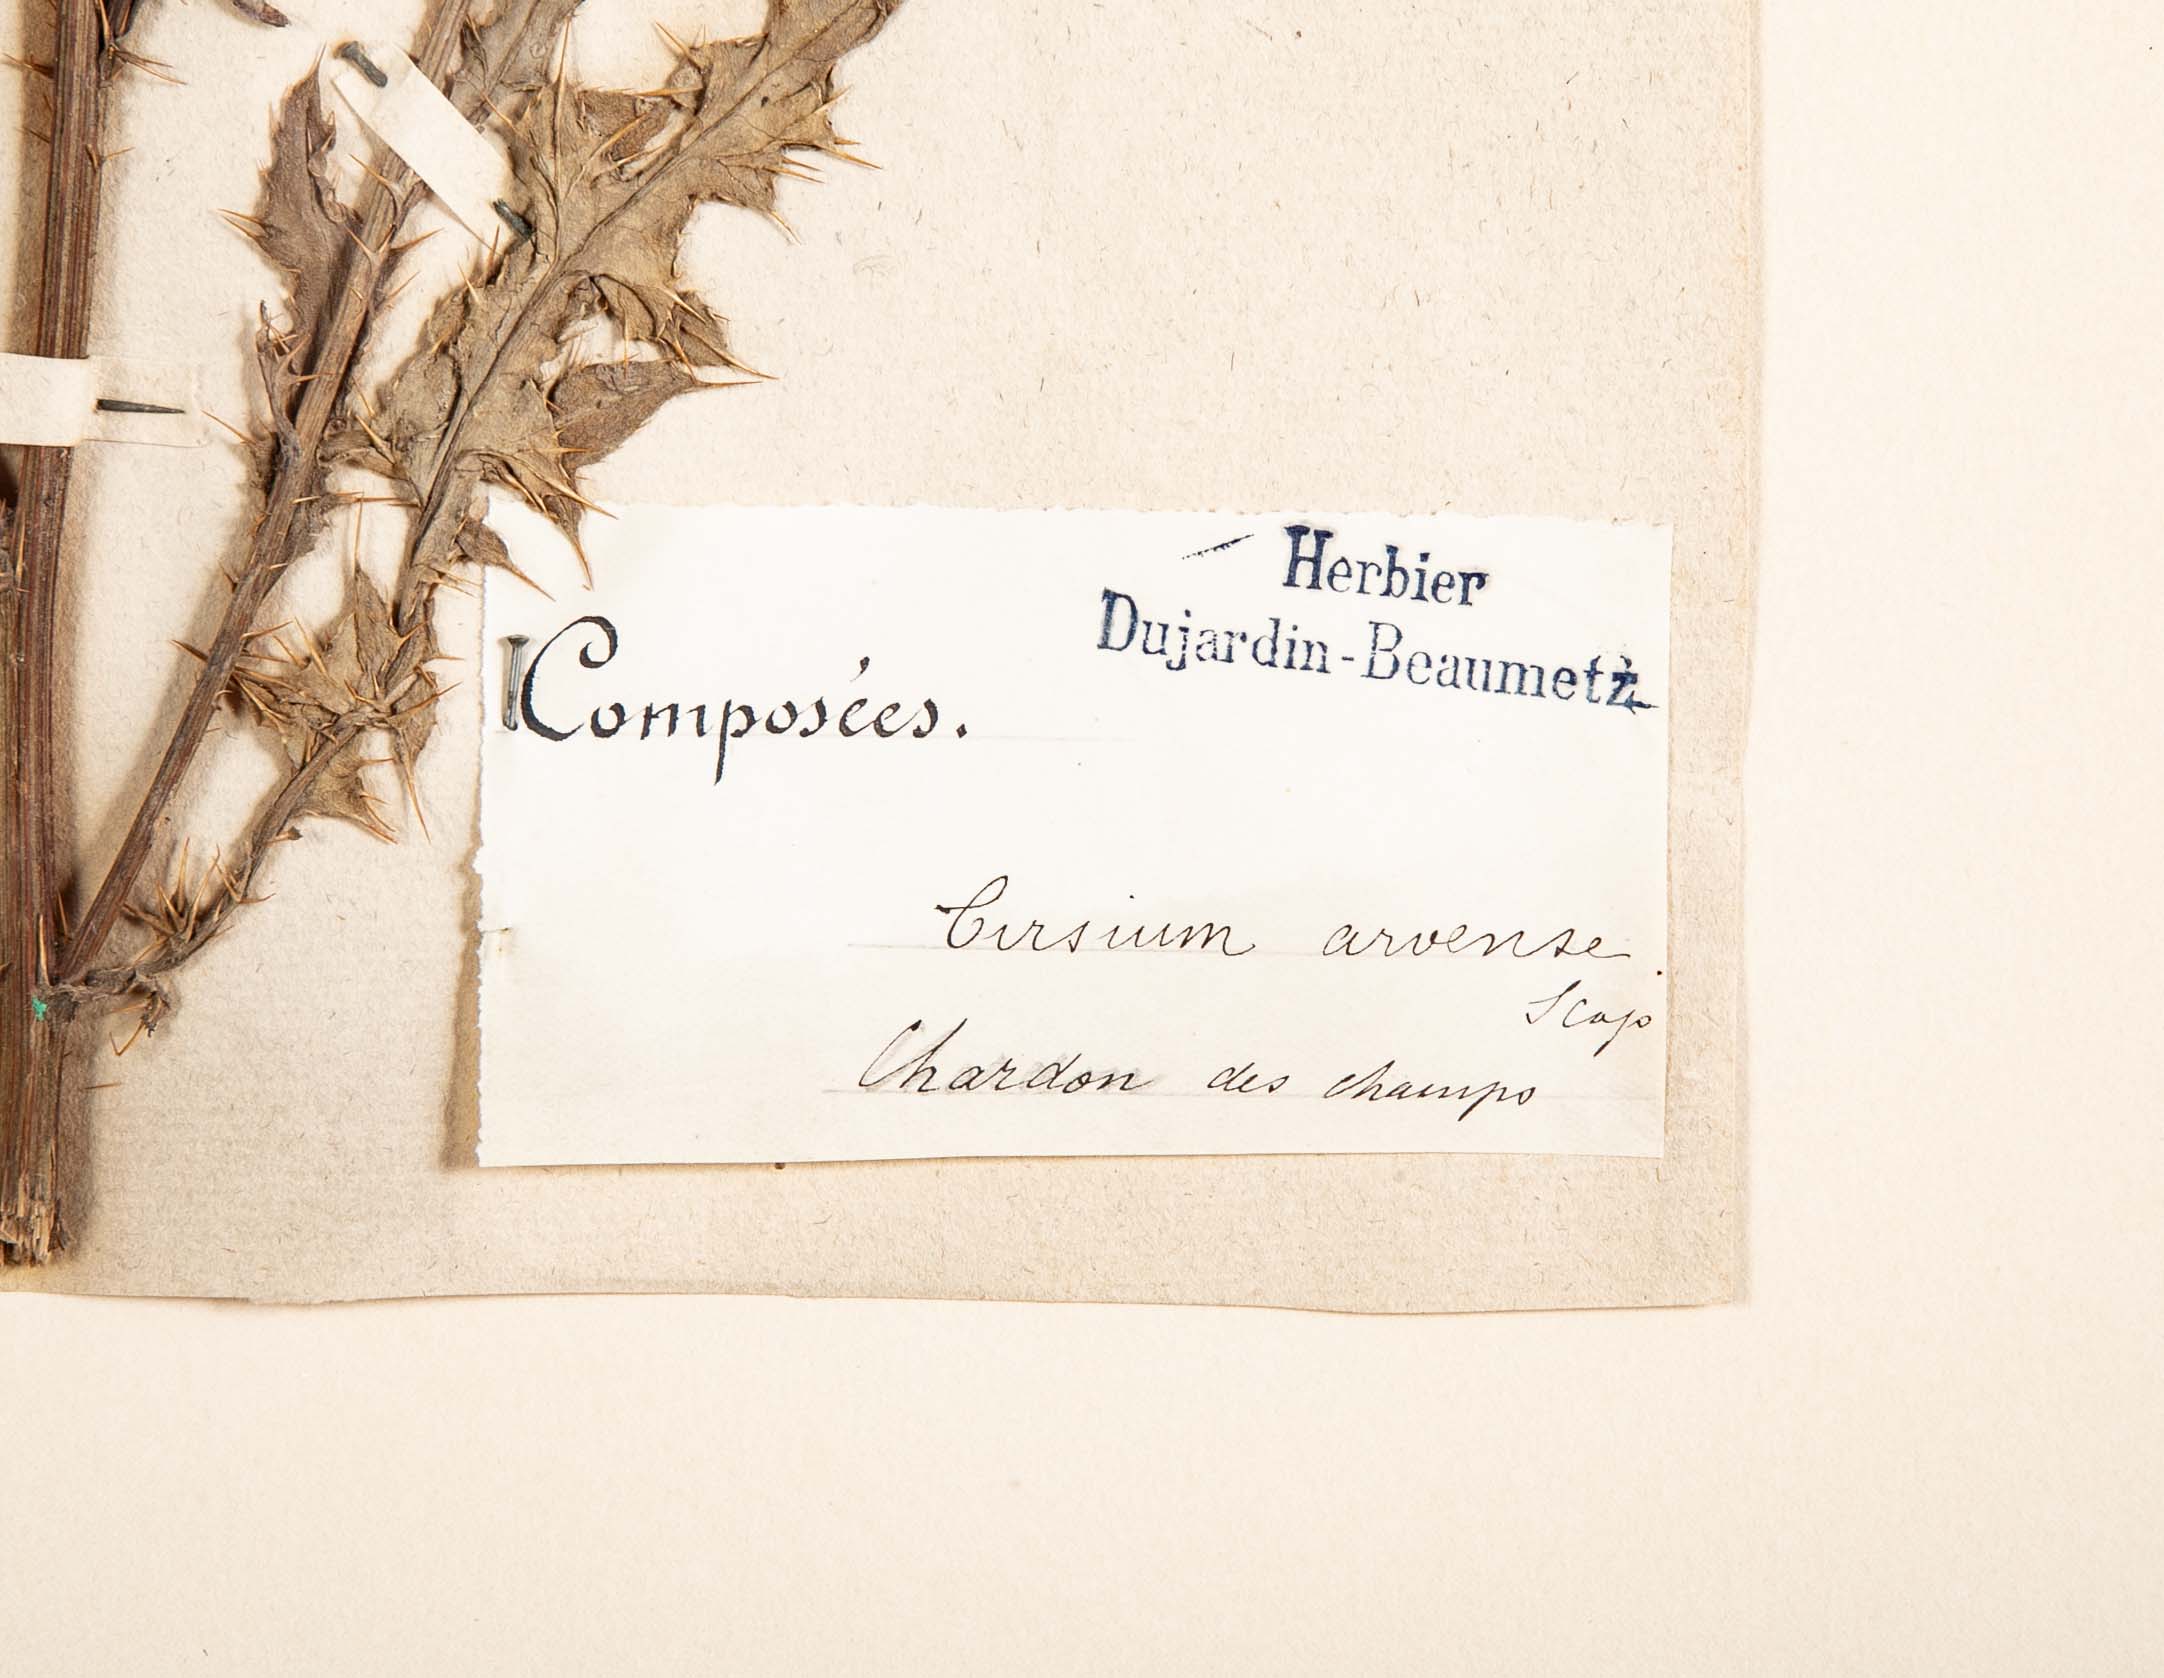 Herbier
Dujardin-Beaumetz
Composées.
Cirsium arvense.
Scop
Chardon des champs